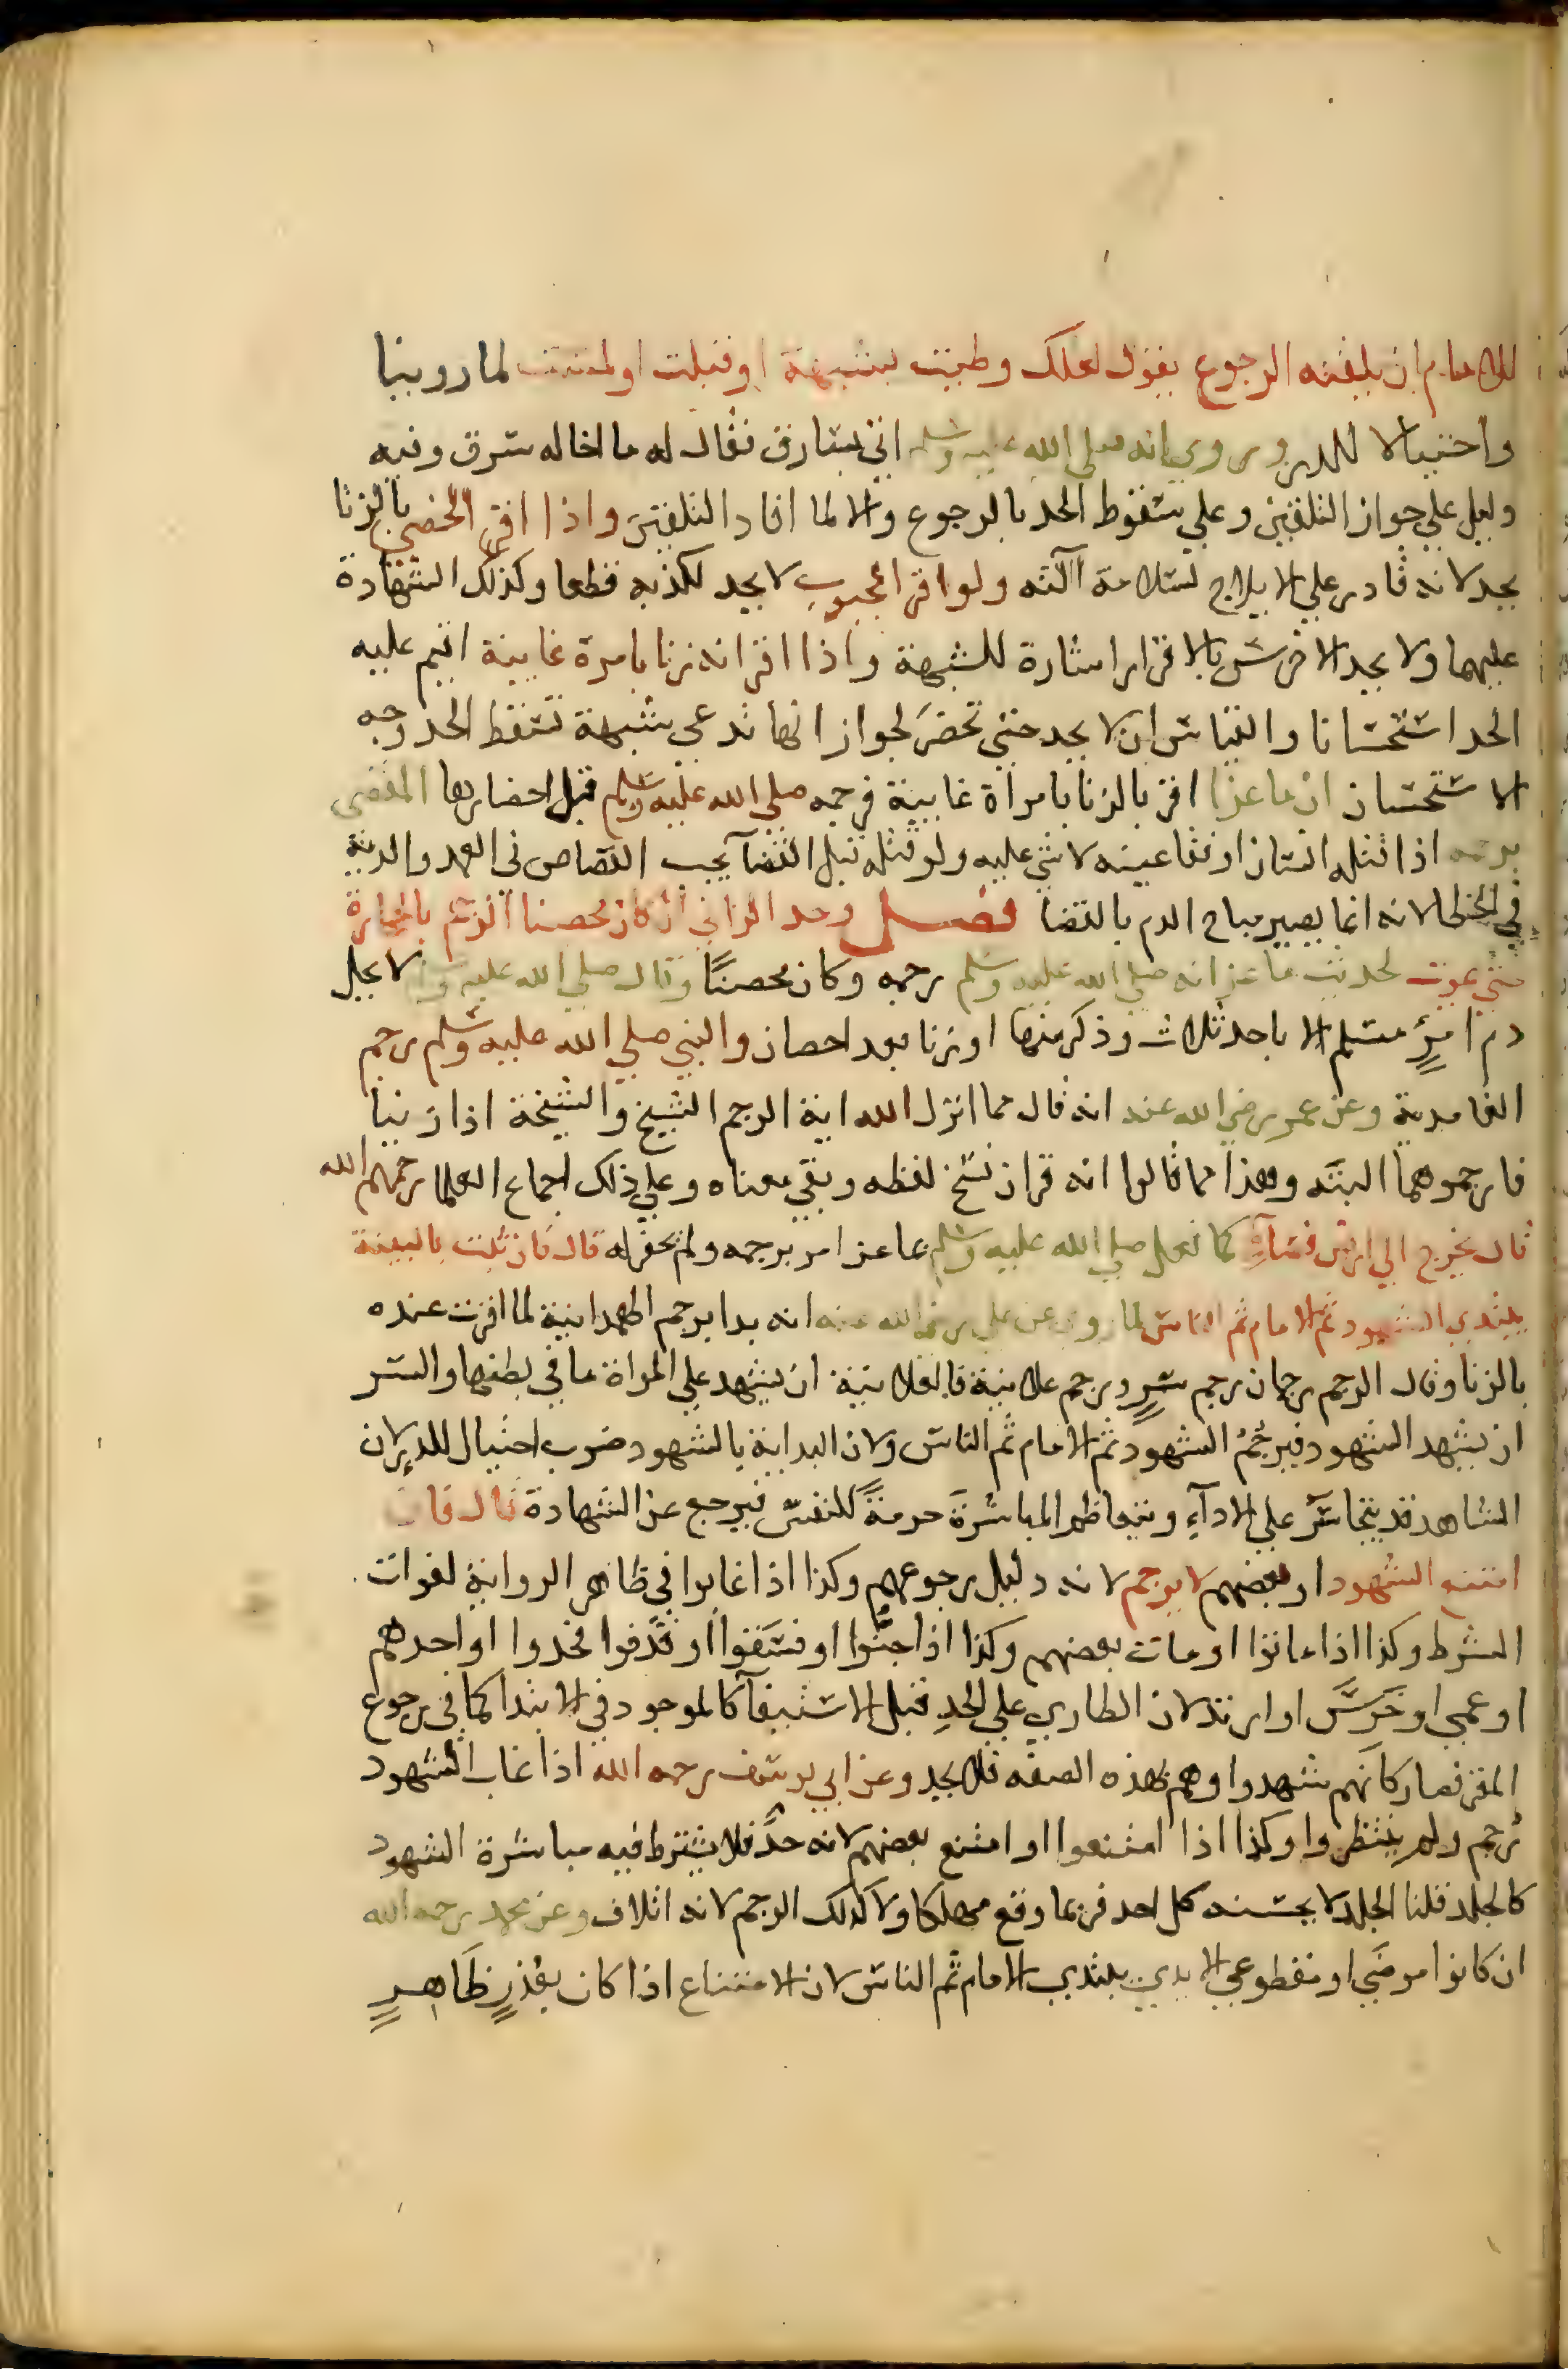 للامام ان يلقنه الرجوع بقول لعلك وطيت بشبهة او قبلت او لمست لما روينا
واحتيالا للدرء وروي انه صلى الله عليه وسلم اتي بسارق فقال له ما اخاله سرق وفيه
دليل علي جواز التلقين وعلي سقوط الحد بالرجوع والا لما افاد التلقين واذا اقر الخصي بالزنا
يحد لانه قادر علي الايلاج لسلامة آلته ولو اقر المجبوب لا يحد لكذبه قطعا وكذلك الشهادة
عليهما ولا يحد الاخرس بالاقرار اشارة للشبهة واذا اقر انه زنا بامرة غايبة اقيم عليه
الحد استحسانا والقياس ان لا يحد حتي تحضر لجواز انها تدعي شبهة تسقط الحد وجه
الاستحسان ان ماعزا اقر بالزنا بامراة غايبة فرجمه صلي الله عليه وسلم قبل احضارها المقضي
برجمه اذا قتله انسان او فقا عينه لا شي عليه ولو قتله قبل القضآ يجب القصاص في العمد والدية
في الخطا لانه انما يصير مباح الدم بالقضا فصل وحد الزاني ان كان محصنا الرجم بالحجارة
حتي يموت لحديث ماعز انه صلي الله عليه وسلم رجمه وكان محصنًا وقال صلي الله عليه وسلم لا يحل
دم امرئٍ مسلم الا باحد ثلاث وذكر منها او زنا بعد احصان والنبي صلي الله عليه وسلم رجم
الغامدية وعن عمر رضي الله عنه انه قال مما انزل الله اية الرجم الشيخ والشيخة اذا زنيا
فارجموهما البتّه وهذا مما قالوا انه قران نسخ لفظه وبقي معناه وعلي ذلك اجماع العلما رحمهم الله
قال يخرج الي ارض فضآءٍ كما فعل صلي الله عليه وسلم بماعز امر برجمه ولم يحفر له قال فان ثبت بالبينة
يبتدي الشهود ثم الامام ثم الناس لما روي عن علي رضي الله عنه انه بدا برجم الهمدانية لما اقرت عنده
بالزنا وقال الرجم رجمان رجم سرٍ ورجم علانية فالعلانية ان يشهد علي المراة ما في بطنها والسر
ان يشهد الشهود فيرجُمُ الشهود ثم الامام ثم الناس ولان البداية بالشهود ضرب احتيال للدرء لان
الشاهد قد يتجاسَر علي الادآءِ ويتعاظم المباشرة حرمةً للنفس فيرجع عن الشهادة قال فان
امتنع الشهود او بعضهم لا يرجم لانه دليل رجوعهم وكذا اذا غابوا في ظاهر الرواية لفوات
الشرط وكذا اذا ماتوا او مات بعضهم وكذا اذا جنّوا او فسَقوا او قذفوا فحدوا او احدهم
او عمي او خرَس او ارتد لان الطاري علي الحدِ قبل الاستيفآ كالموجود في الابتدا كما في رجوع
المقر فصار كانهم شهدوا وهم بهذه الصفه فلا يحد وعن ابي يوسف رحمه الله اذا غاب الشهود
رُجم ولم ينتظروا وكذا اذا امتنعوا او امتنع بعضهم لانه حدٌّ فلا يشترط فيه مباشرة الشهود
كالجلد قلنا الجلد لا يحسنه كل احد فربما وقع مهلكا ولا كذلك الرجم لانه اتلاف وعن محمد رحمه الله
ان كانوا مرضَي او مقطوعي الايدي يبتدي الامام ثم الناس لان الامتناع اذا كان بعُذرٍ ظَاهِرٍ